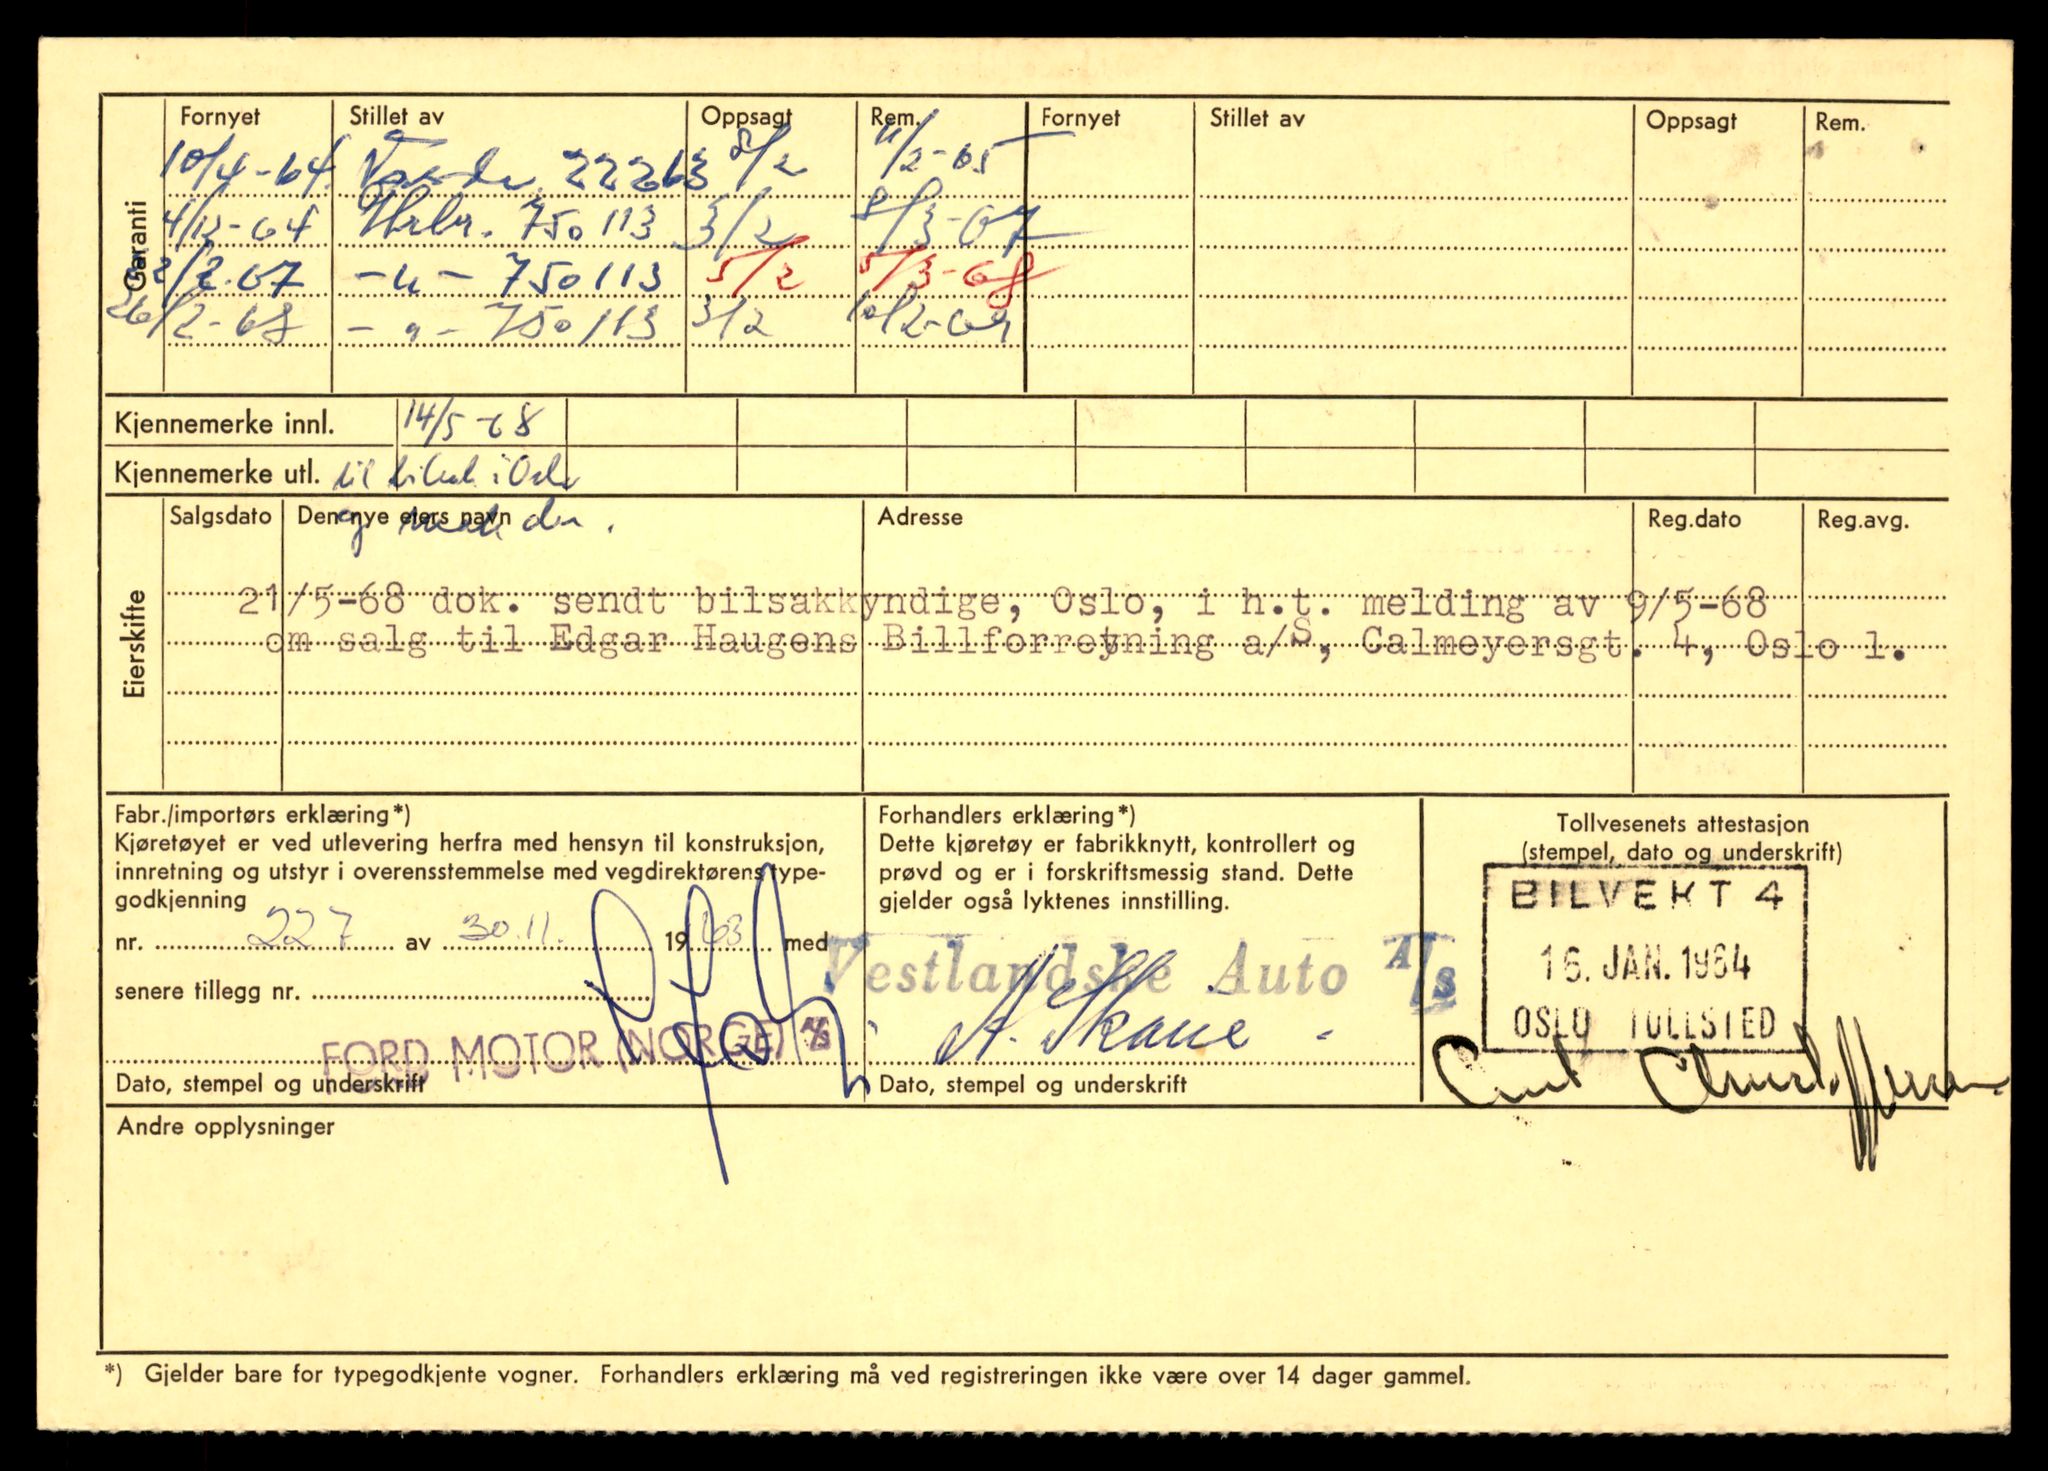 Fornyet Stillet av Oppsagt Rem. Fornyet Stillet av Oppsagt Rem.
Garanti
10/4-64 22263 8/2 11/2-65
4/12-64 750113 3/2 8/3-67
22/2.67 -"- 750113 5/2 5/3-68
26/2-68 -"- 750113 3/2 10/2-69
Kjennemerke innl. 14/5-68
Kjennemerke utl. til i Oslo
Salgsdato Den nye eiers navn Adresse Reg.dato Reg.avg.
Eierskifte
21/5-68 dok. sendt bilsakkyndige, Oslo, i h.t. melding av 9/5-68
om salg til Edgar Haugens Billforretning a/S, Calmeyersgt. 4, Oslo 1.
Fabr./importørs erklæring*)
Kjøretøyet er ved utlevering herfra med hensyn til konstruksjon,
innretning og utstyr i overensstemmelse med vegdirektørens type-
godkjenning
nr. 227 av 30.11. 1963 med
senere tillegg nr.
FORD MOTOR (NORGE) A/S
Dato, stempel og underskrift
Forhandlers erklæring*)
Dette kjøretøy er fabrikknytt, kontrollert og
prøvd og er i forskriftsmessig stand. Dette
gjelder også lyktenes innstilling.
Vestlandske Auto A/S
A. Skaue
Dato, stempel og underskrift
Tollvesenets attestasjon
(stempel, dato og underskrift)
BILVEKT 4
16. JAN. 1964
OSLO TOLLSTED
Andre opplysninger
*) Gjelder bare for typegodkjente vogner. Forhandlers erklæring må ved registreringen ikke være over 14 dager gammel.